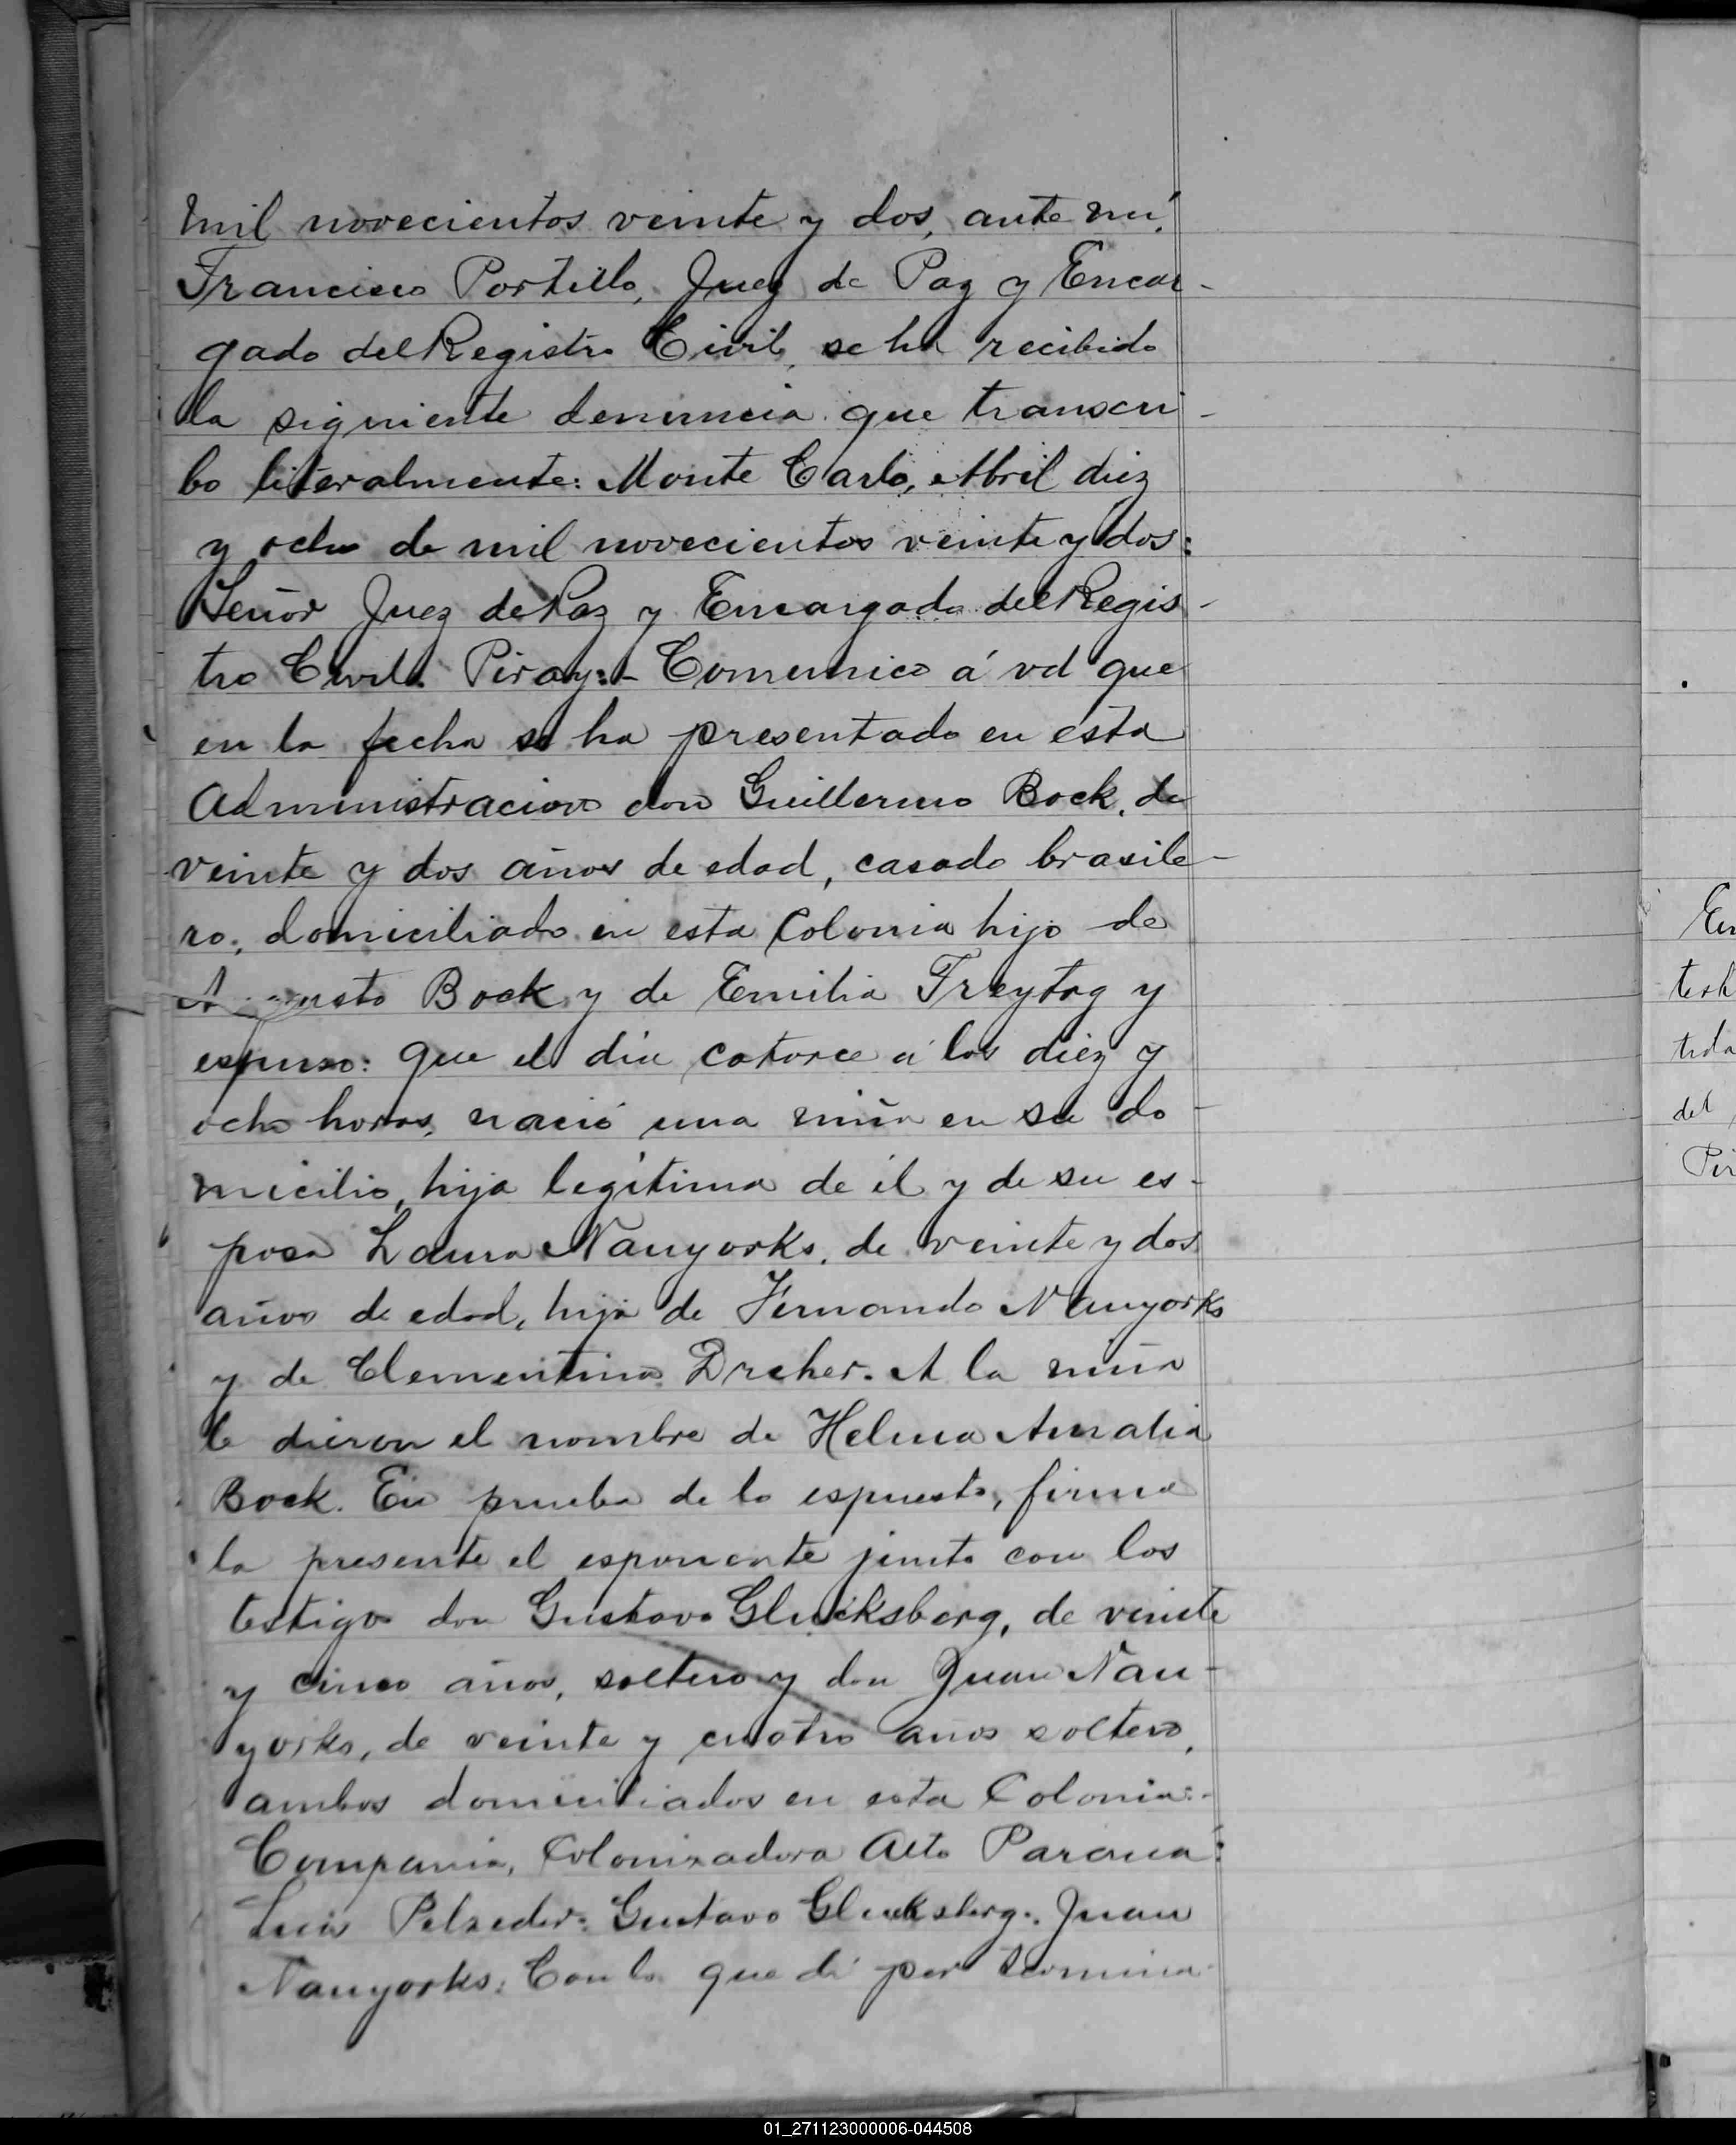 mil novecientos veinte y dos, ante mí,
Francisco Portillo, Juez de Paz y Encar-
gado del Registro Civil, se ha recibido
la siguiente denuncia que transcri-
bo literalmente: Monte Carlo, Abril diez
y ocho de mil novecientos veinte y dos:
Señor Juez de Paz y Encargado del Regis-
tro Civil. Piray:- Comunico á vd que
en la fecha se ha presentado en ésta
Administracion don Guillermo Bock, de
veinte y dos años de edad, casado brasile-
ro, domiciliado en esta Colonia hijo de
Augusto Bock y de Emilia Freytag y
espuso: que el dia catorce á las diez y
ocho horas, nació una niña en su do-
micilio, hija legítima de él y de su es-
posa Laura Nauyorks, de veinte y dos
años de edad, hija de Fernando Nauyorks
y de Clementina Dreher. A la niña
le dieron el nombre de Helma Amalia
Bock. En prueba de lo espuesto, firma
la presente el esponente junto con los
testigos don Gustavo Glucksberg, de veinte
y cinco años, soltero y don Juan Nau-
yorks, de veinte y cuatro años soltero,
ambos domiciliados en esta Colonia:-
Compania, Colonizadora Alto Parana:
Luis Gustavo Glucksberg:. Juan
Nauyorks: Con lo que di por termina-
En
test
trda
del
Pir
01_271123000006-044508